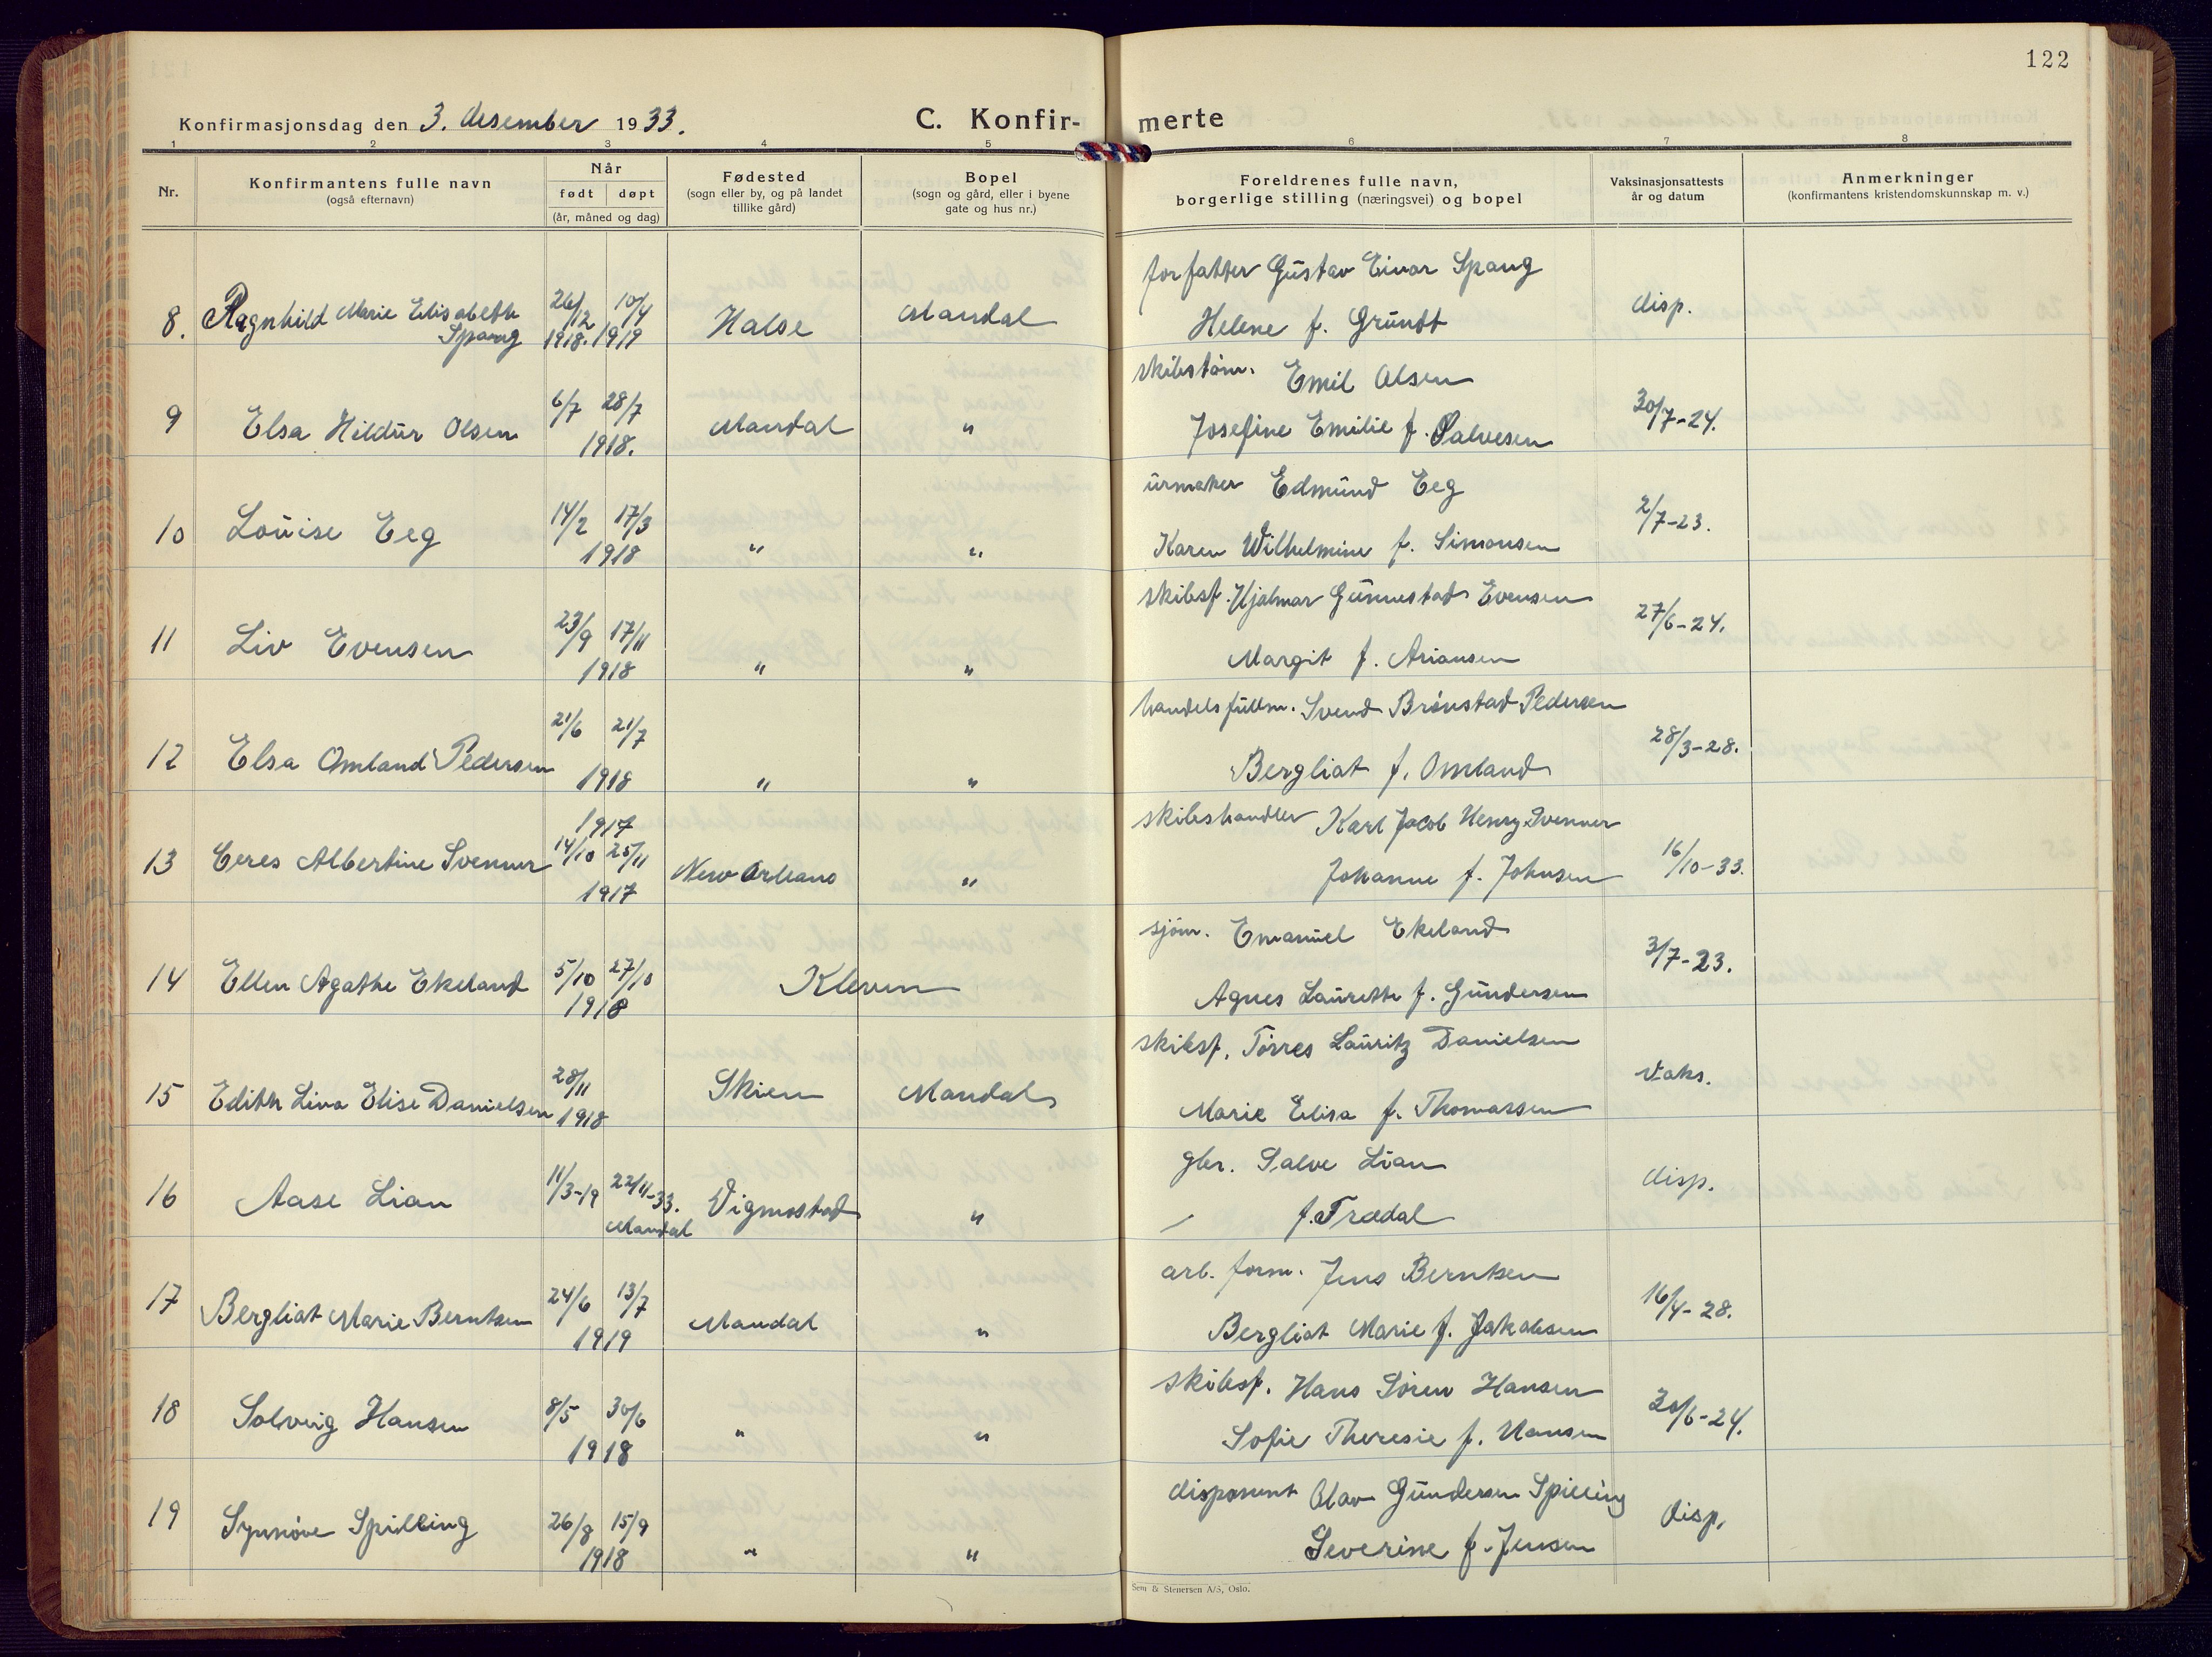 122
Konfirmasjonsdag den 3. desember 1933.
C. Konfir-merte
1 2 3 4 5 6 7 8
Nr.
Konfirmantens fulle navn
(også efternavn)
Når
født døpt
(år, måned og dag)
Fødested
(sogn eller by, og på landet
tillike gård)
Bopel
(sogn og gård, eller i byene
gate og hus nr.)
Foreldrenes fulle navn,
borgerlige stilling (næringsvei) og bopel
Vaksinasjonsattests
år og datum
Anmerkninger
(konfirmantens kristendomskunnskap m. v.)
forfatter Gustav Einar Spang
8. Ragnhild Marie Elisabeth 26/12 10/4 Halse Mandal disp.
Spang 1918. 1919 Helene f. Grundt
skibstøm. Emil Olsen
9 Elsa Hildur Olsen 6/7 28/7 Mandal " 30/7-24.
1918. Josefine Emilie f. Salvesen
urmaker Edmund Eeg
10 Louise Eeg 14/2 17/3 " " 2/7-23.
1918 Karen Wilhelmine f. Simonsen
skibsf. Hjalmar Gunnestad Evensen
11 Liv Evensen 23/9 17/11 " " 27/6-24.
1918 Margit f. Ariansen
handelsfullm. Svend Brønstad Pedersen
12 Elsa Omland Pedersen 21/6 21/7 " " 28/3-28.
1918 Bergliot f. Omland
1917 skibshandler Karl Jacob Henry Svenner
13 Ceres Albertine Svenner 14/10 25/11 New Orleans " 16/10-33.
1917 Johanne f. Johnsen
sjøm. Emanuel Ekeland
14 Ellen Agathe Ekeland 5/10 27/10 Kleven 3/7-23.
1918 Agnes Laurette f. Gundersen
skibsf. Tørres Lauritz Danielsen
15 Edith Liva Elise Danielsen 28/11 Skien Mandal Vaks.
1918 Marie Elisa f. Thomassen
gbr. Salve Lian
16 Aase Lian 11/3-19 22/11-33. Vigmostad " disp.
Mandal / f. Trædal
arb. form. Jens Berntsen
17 Bergliot Marie Berntsen 24/6 13/7 Mandal " 16/4-28.
1919 Bergliot Marie f. Jakobsen
skibsf. Hans Søren Hansen
18 Solveig Hansen 8/5 30/6 " " /6-24.
1918 Sofie Theresie f. Hansen
disponent Olav Gundersen Spilling
19 Synnøve Spilling 26/8 15/9 " " disp.
1918 Severine f. Jensen
Sem & Stenersen A/S, Oslo.